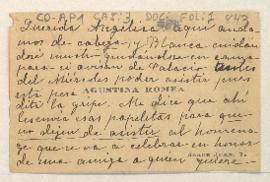 CO-AP1 CAJ.3 DOC. FOLI 843
Querida Angelina: aquí anda-
mos de cabeza, y Blanca cuidan
dose mucho
para si avisan de Palacio antes
del Miércoles poder asistir pues
está para
AGUSTINA ROMEA
dita la gripe. Me dice que ahí
las papeletas para que
no dejen de asistir al homena
je que se va a celebrar en honor
de una amiga a quien quiere
JORGE JUAN, 7.